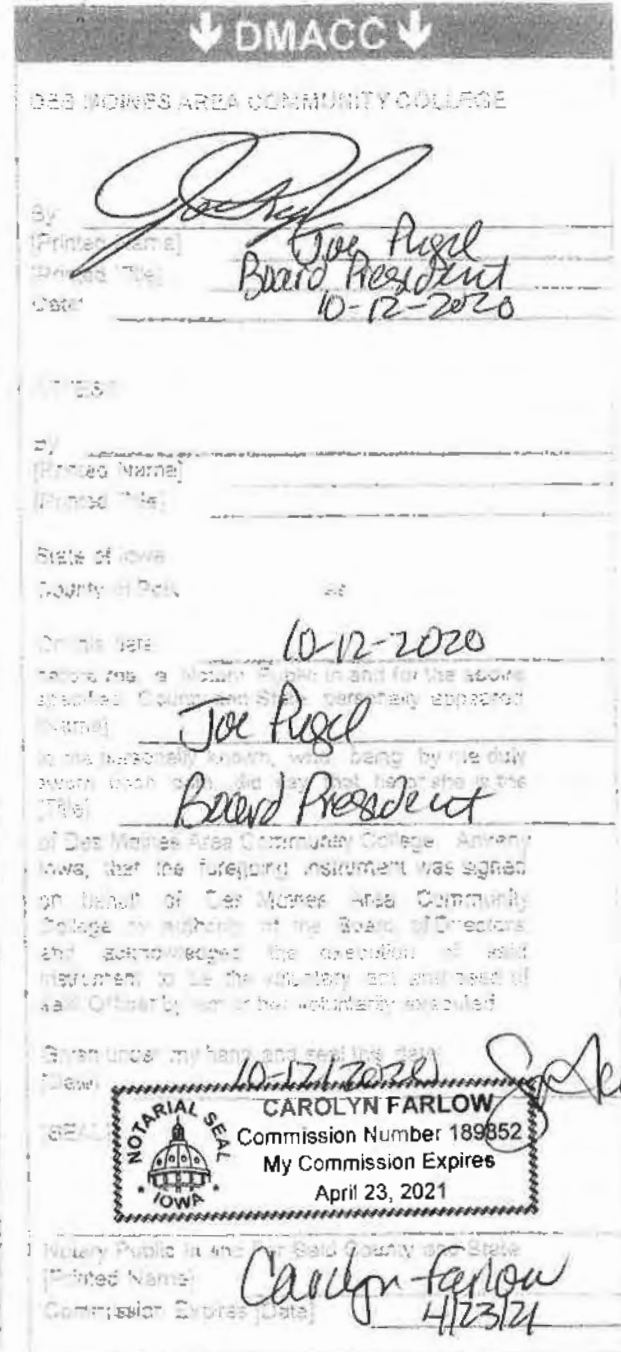 DMACC
DES MOINES AREA COMMUNITY COLLEGE
By
[Printed Name] Joe Pugel
[Printed Title] Board President
Date: 10-12-2020
ATTEST
By
[Printed Name]
[Printed Title]
State of Iowa
County of Polk ss
On this date 10-12-2020
before me, a Notary Public in and for the above
specified County and State personally appeared
[Name] Joe Pugel
to me personally known, who being by me duly
sworn upon oath did say that he or she is the
[Title] Board President
of Des Moines Area Community College, Ankeny
Iowa, that the foregoing instrument was signed
on behalf of Des Moines Area Community
College by authority of the Board of Directors
and acknowledged the execution of said
instrument to be the voluntary act and deed of
said Officer by him or her voluntarily executed
Given under my hand and seal this date
[Date] 10-12-2020
[SEAL]
NOTARIAL SEAL
IOWA
CAROLYN FARLOW
Commission Number 189852
My Commission Expires
April 23, 2021
Notary Public in and For Said County and State
[Printed Name] Carolyn Farlow
Commission Expires [Date] 4/23/21